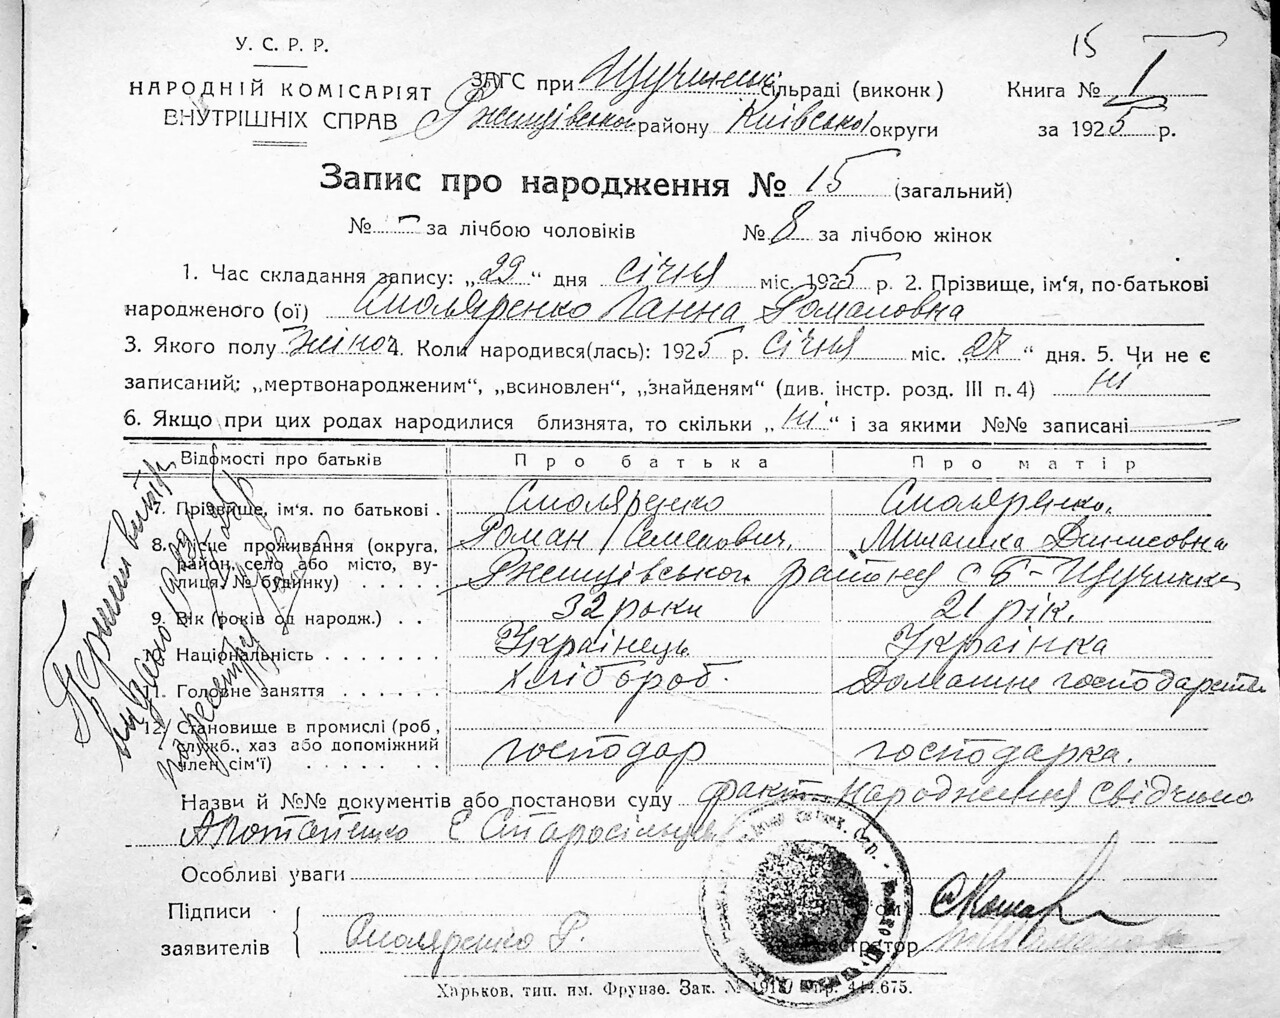 15
У. С. Р. Р.
НАРОДНІЙ КОМІСАРІЯТ
ВНУТРІШНІХ СПРАВ
ЗАГС при Щучинській сільраді (виконк)
Ржищівського району Київської округи
Книга № I
за 1925 р.
Запис про народження № 15 (загальний)
№ – за лічбою чоловіків № 8 за лічбою жінок
1. Час складання запису: „29“ дня січня міс. 1925 р. 2. Прізвище, ім'я, по-батькові
народженого (ої) Смоляренко Ганна Романовна
3. Якого полу жіноч 4. Коли народився(лась): 1925 р. січня міс. „27“ дня. 5. Чи не є
записаний; „мертвонародженим“, „всиновлен“, „знайденям“ (див. інстр. розд. III п. 4) ні
6. Якщо при цих родах народилися близнята, то скільки „ні“ і за якими №№ записані
Відомості про батьків Про батька Про матір
7. Прізвище, ім'я. по батькові . Смоляренко Смоляренко.
8. Місце проживання (округа, Роман Семенович. Динисовна
район, село або місто, ву-
лиця, № будинку) . . . . Ржищівського району с Б-Щучинка
9. Вік (років од народж.) . . 32 роки 21 рік.
10. Національність . . . . . . . Українець Українка
11. Головне заняття . . . . . . Хлібороб. Домашне господарство
12. Становище в промислі (роб,
служб., хаз або допоміжний господар господарка.
член сім'ї) . . . . . .
Перший витяг
видано
Назви й №№ документів або постанови суду факт народження свідчимо
Апотапенко Є Старосільцев
Особливі уваги
Підписи
заявителів Смоляренко Р.
Реєстратор
Харьков, тип. им. Фрунзе. Зак. №